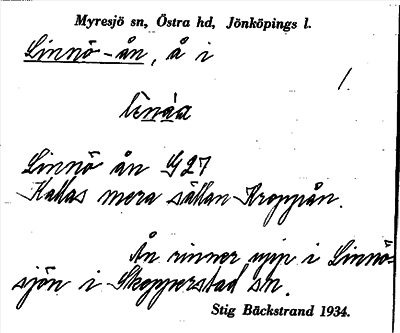 Myresjö sn, Östra hd, Jönköpings l.
Linnö-ån, å i
1.
Linnö ån G27
Kallas mera sällan Kroppån.
Ån rinner upp i Linnö-
sjön i Skepperstad sn.
Stig Bäckstrand 1934.